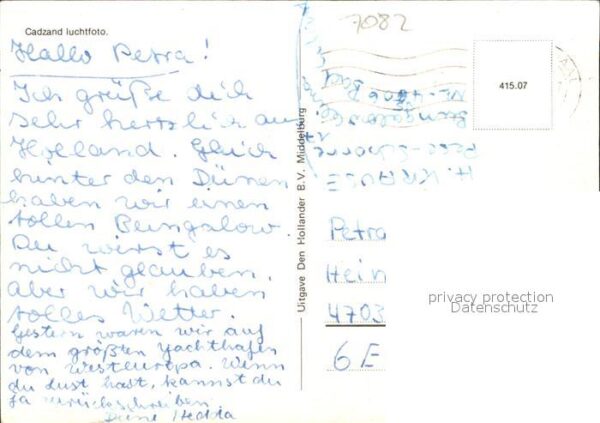 Cadzand luchtfoto.
7082
Hallo Petra!
Ich grüße dich
sehr herzlich aus
Holland. Gleich
hunter den Dünen
haben wir einen
tollen Bungalow.
Du wirst es
nicht glauben,
aber wir haben
tolles Wetter.
Gestern waren wir auf
dem größten Yachthafen
von Westeuropa. Wenn
du Lust hast, kannst du
ja zurückschreiben.
Deine Hedda
Uitgave Den Hollander B.V. Middelburg
H. KRAUSE
415.07
Petra
Hein
4703
6E
privacy protection
Datenschutz